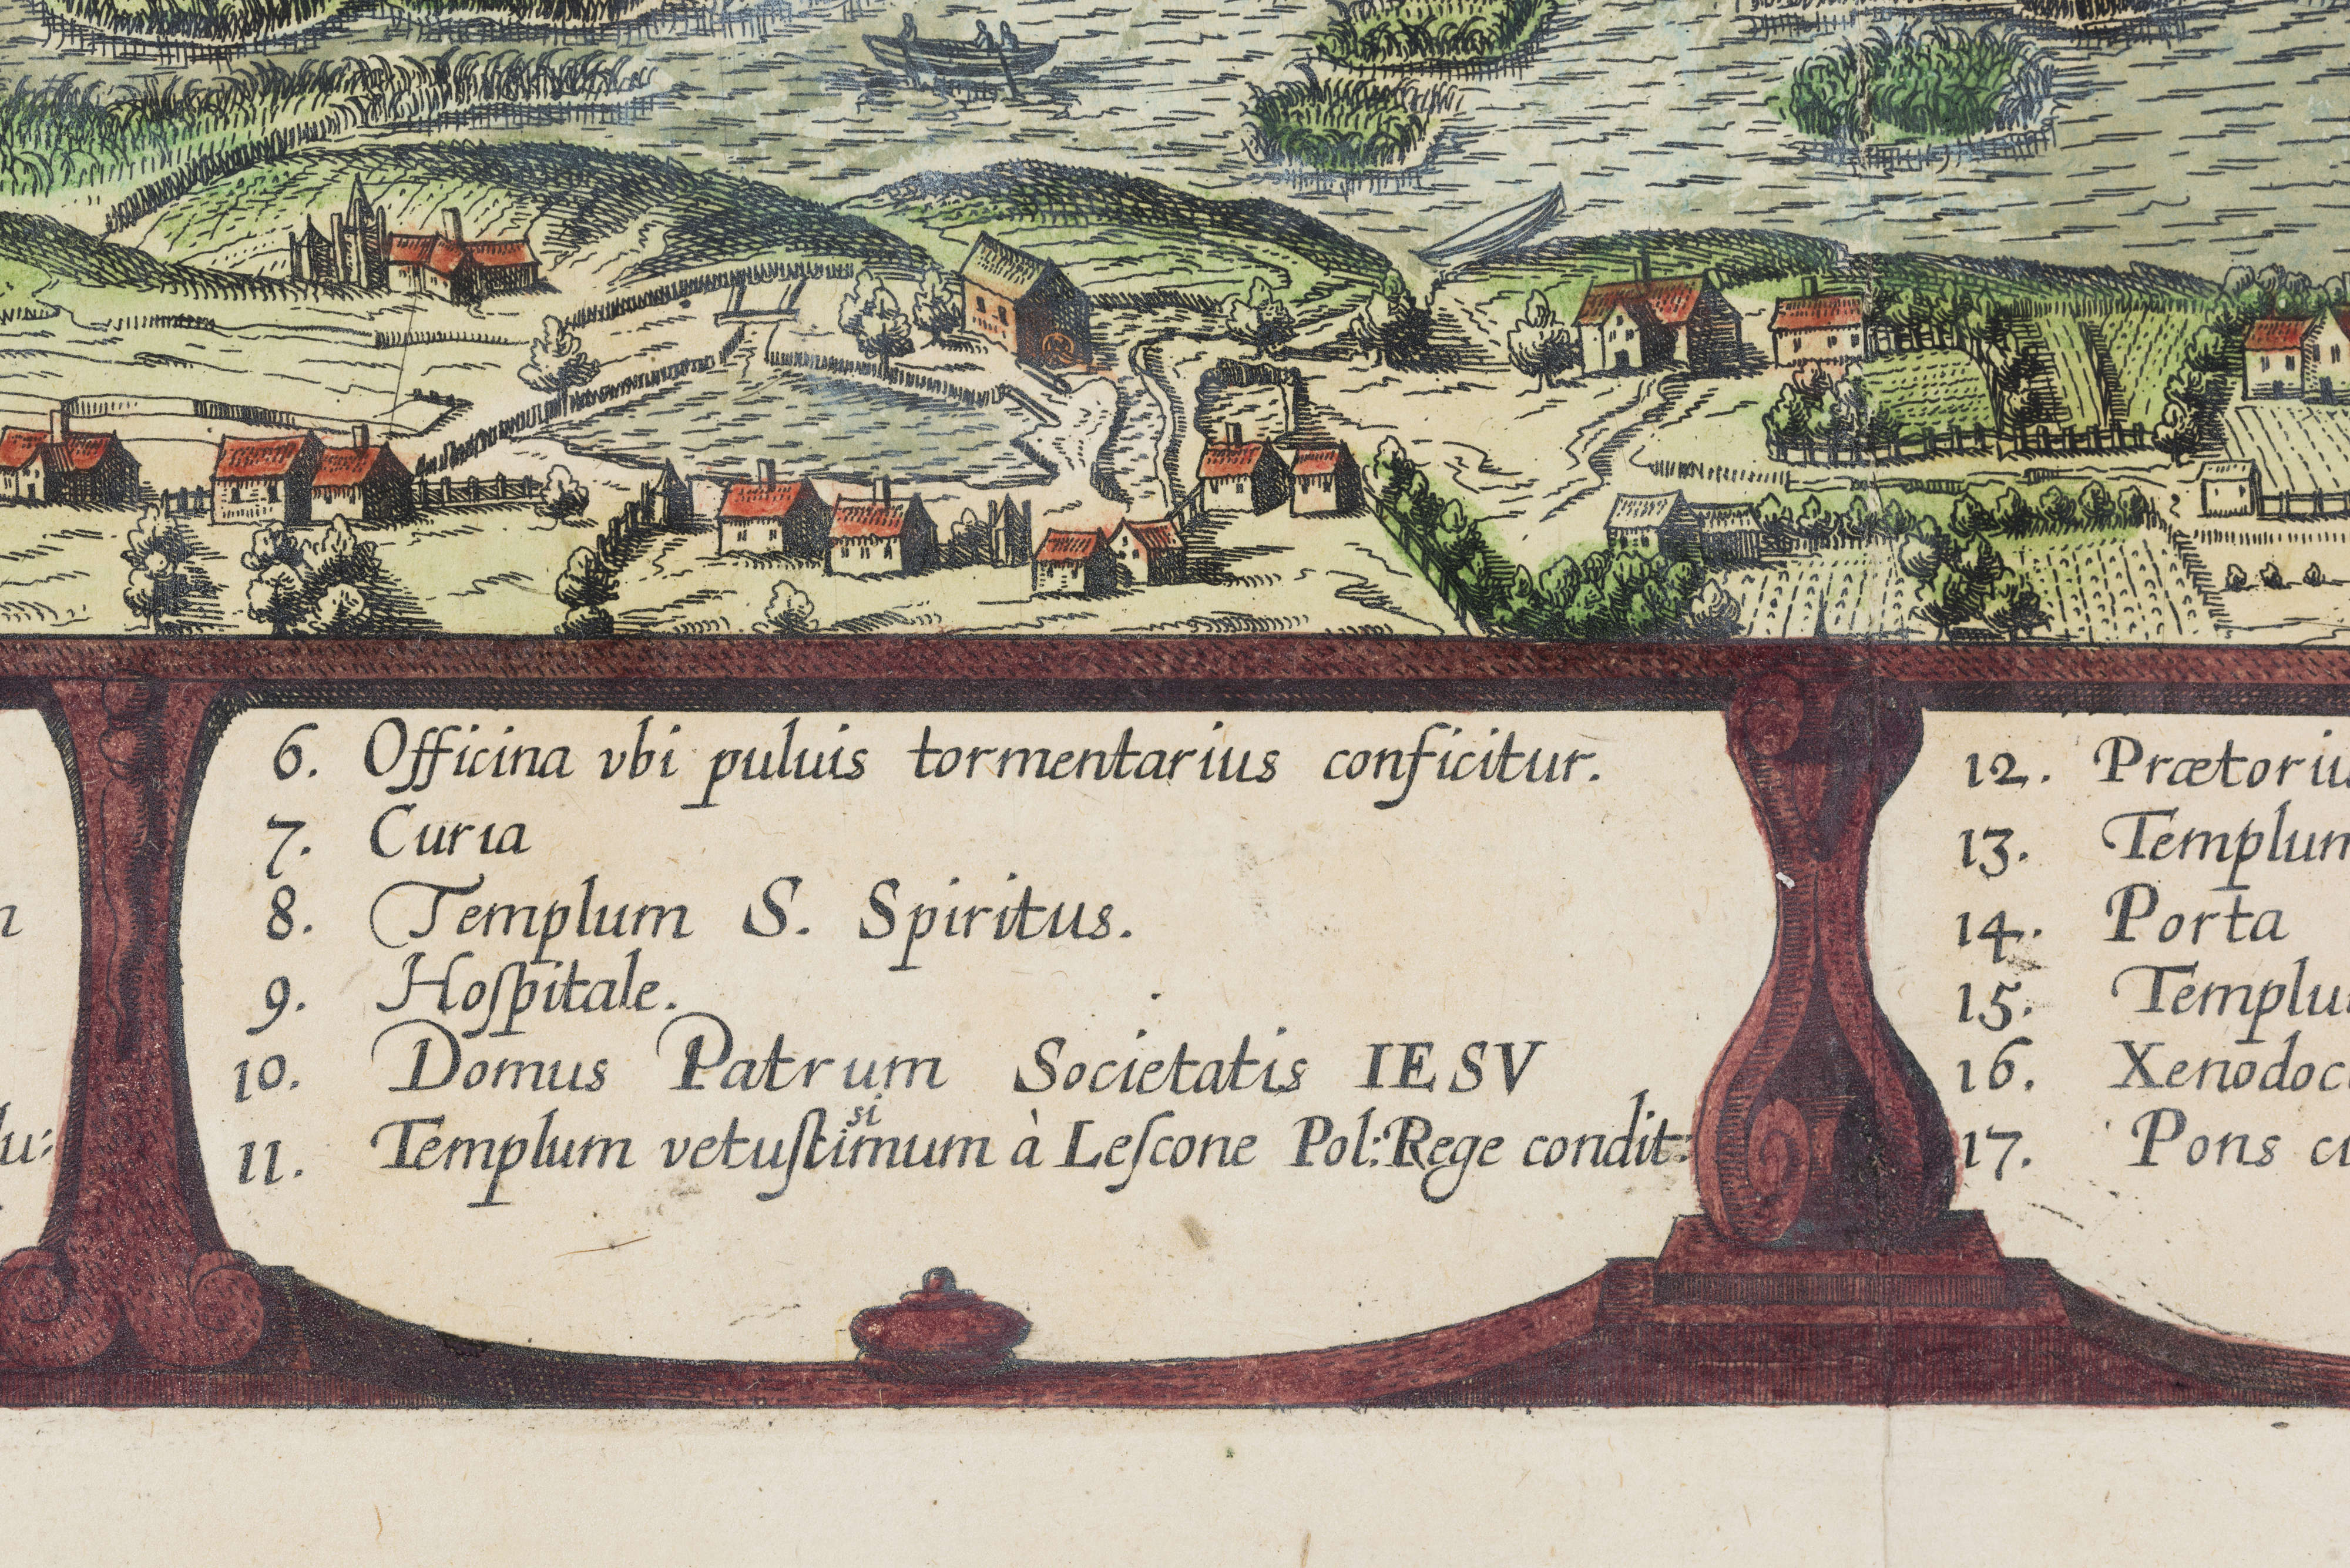 6. Officina vbi puluis tormentarius conficitur.
7. Curia
8. Templum S. Spiritus.
9. Hoſpitale.
10. Domus Patrum Societatis IESV
11. Templum vetuſtisimum à Leſcone Pol: Rege condit:
12. Prætoriu
13. Templum
14. Porta
15. Templu
16. Xenodoc
17. Pons ci